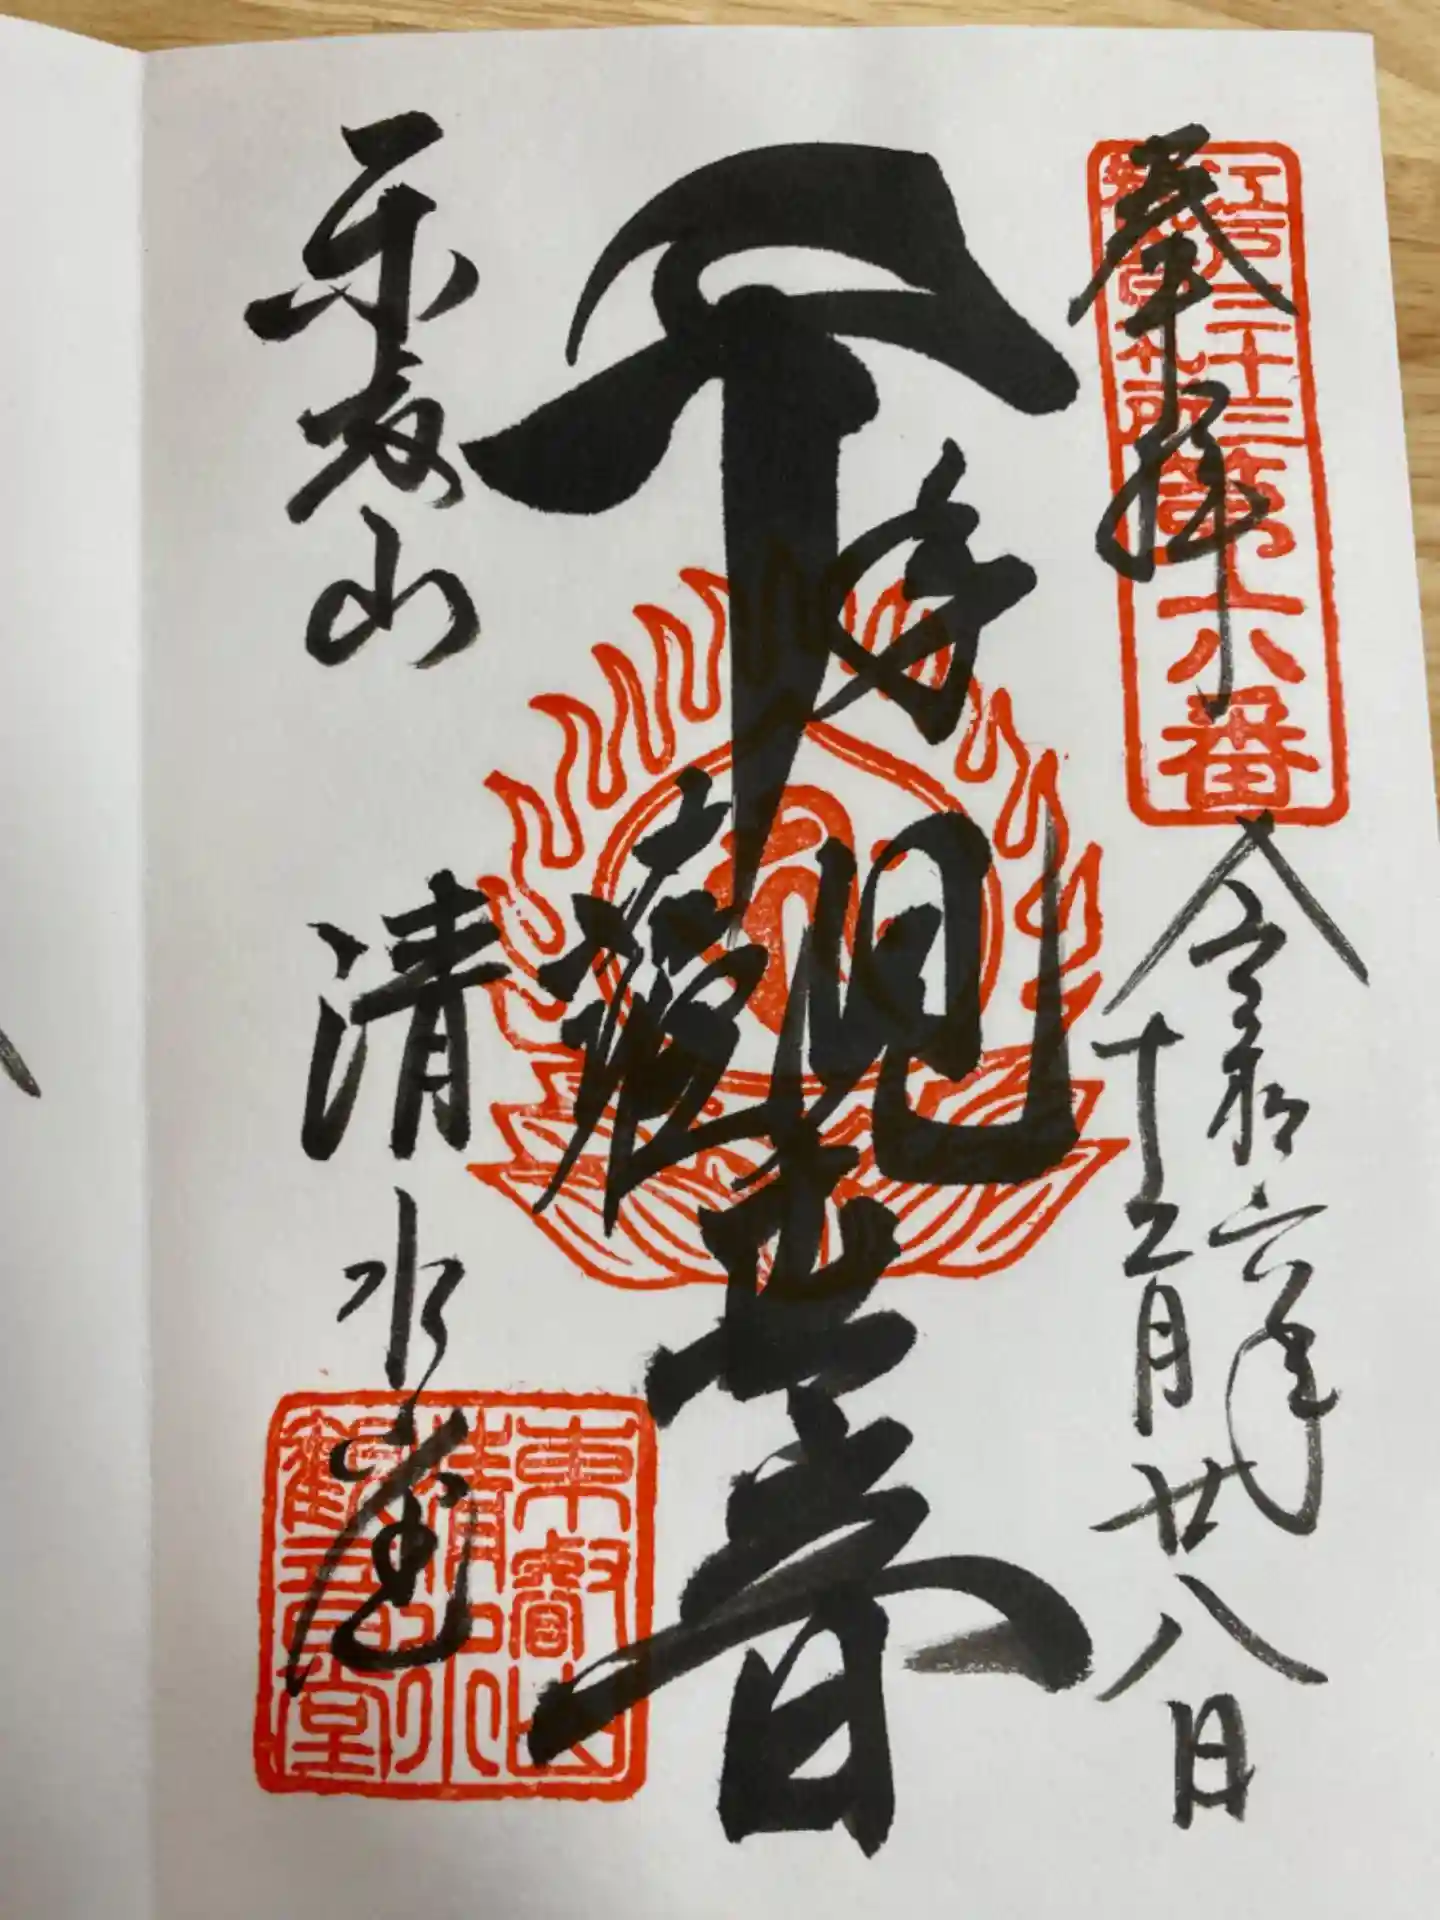 奉拝
江戸三十三
観音札所
第六番
令和六年
十二月廿八日
千手観世音
東叡山
清水堂
東叡山
清水
観音堂